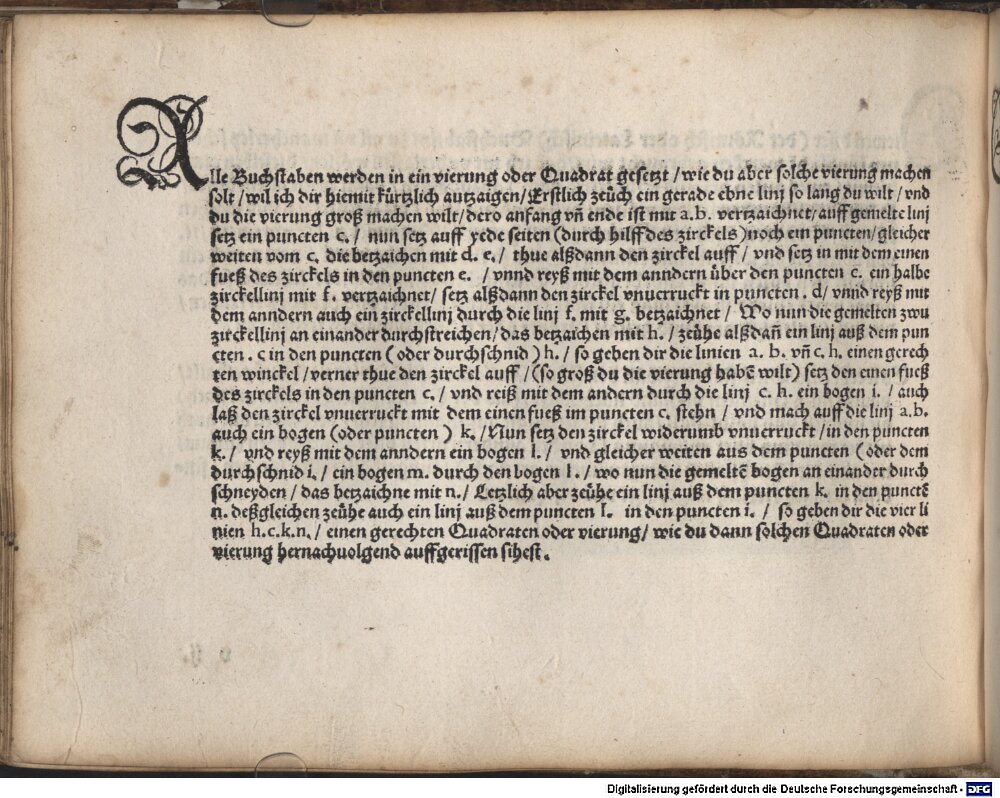 Alle Buchstaben werden in ein vierung oder Quadrat gesetzt / wie du aber solche vierung machen
solt / wil ich dir hiemit kürtzlich autzaigen / Erstlich zeüch ein gerade ebne linj so lang du wilt / vnd
du die vierung groß machen wilt / dero anfang vñ ende ist mit a.b. vertzaichnet / auff gemelte linj
setz ein puncten c. / nun setz auff yede seiten (durch hilff des zirckels) noch ein puncten / gleicher
weiten vom c. die betzaichen mit d. e. / thue alßdann den zirckel auff / vnd setz in mit dem einen
fueß des zirckels in den puncten e. / vnnd reyß mit dem anndern über den puncten c. ein halbe
zirckellinj mit f. vertzaichnet / setz alßdann den zirckel vnuerruckt in puncten . d / vnnd reyß mit
dem anndern auch ein zirckellinj durch die linj f. mit g. betzaichnet / Wo nun die gemelten zwu
zirckellinj an einander durchstreichen / das betzaichen mit h. / zeühe alßdañ ein linj auß dem pun
cten . c in den puncten (oder durchschnid) h. / so geben dir die linien a. b. vñ c. h. einen gerech
ten winckel / verner thue den zirckel auff / (so groß du die vierung habē wilt) setz den einen fueß
des zirckels in den puncten c. / vnd reiß mit dem andern durch die linj c. h. ein bogen i. / auch
laß den zirckel vnuerruckt mit dem einen fueß im puncten c. stehn / vnd mach auff die linj a.b.
auch ein bogen (oder puncten) k. / Nun setz den zirckel widerumb vnuerruckt / in den puncten
k. / vnd reyß mit dem anndern ein bogen l. / vnd gleicher weiten aus dem puncten (oder dem
durchschnid i. / ein bogen m. durch den bogen l. / wo nun die gemeltē bogen an einander durch
schneyden / das betzaichne mit n. / Letzlich aber zeühe ein linj auß dem puncten k. in den punctē
n. deßgleichen zeühe auch ein linj auß dem puncten l. in den puncten i. / so geben dir die vier li
nien h.c.k.n. / einen gerechten Quadraten oder vierung / wie du dann solchen Quadraten oder
vierung hernachuolgend auffgerissen sihest.
Digitalisierung gefördert durch die Deutsche Forschungsgemeinschaft - DFG